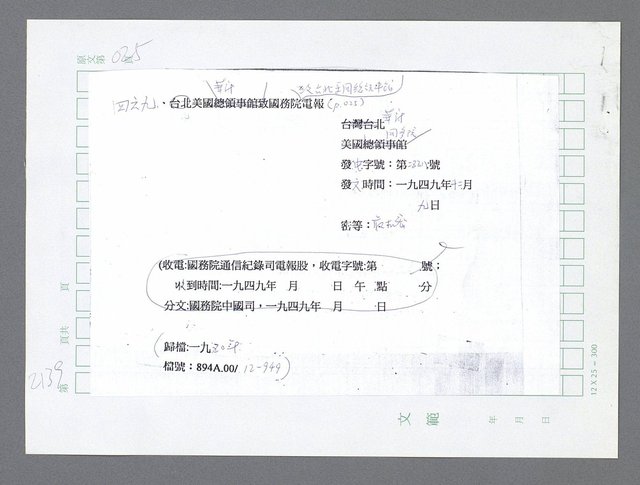 原文第 025 頁
四六九、台北美國總領事館致國務院電報(p.025)
台灣台北
美國總領事館
發電字號：第 號
發文時間：一九四九年十二月
九日
密等：
(收電:國務院通信紀錄司電報股，收電字號:第 號；
收到時間:一九四九年 月 日 午 點 分
分文:國務院中國司，一九四九年 月 日
(歸檔:一九五〇年
檔號：894A.00/ 12-949)
頁共 頁
第 2139
12 X 25 – 300
文範
年 月 日